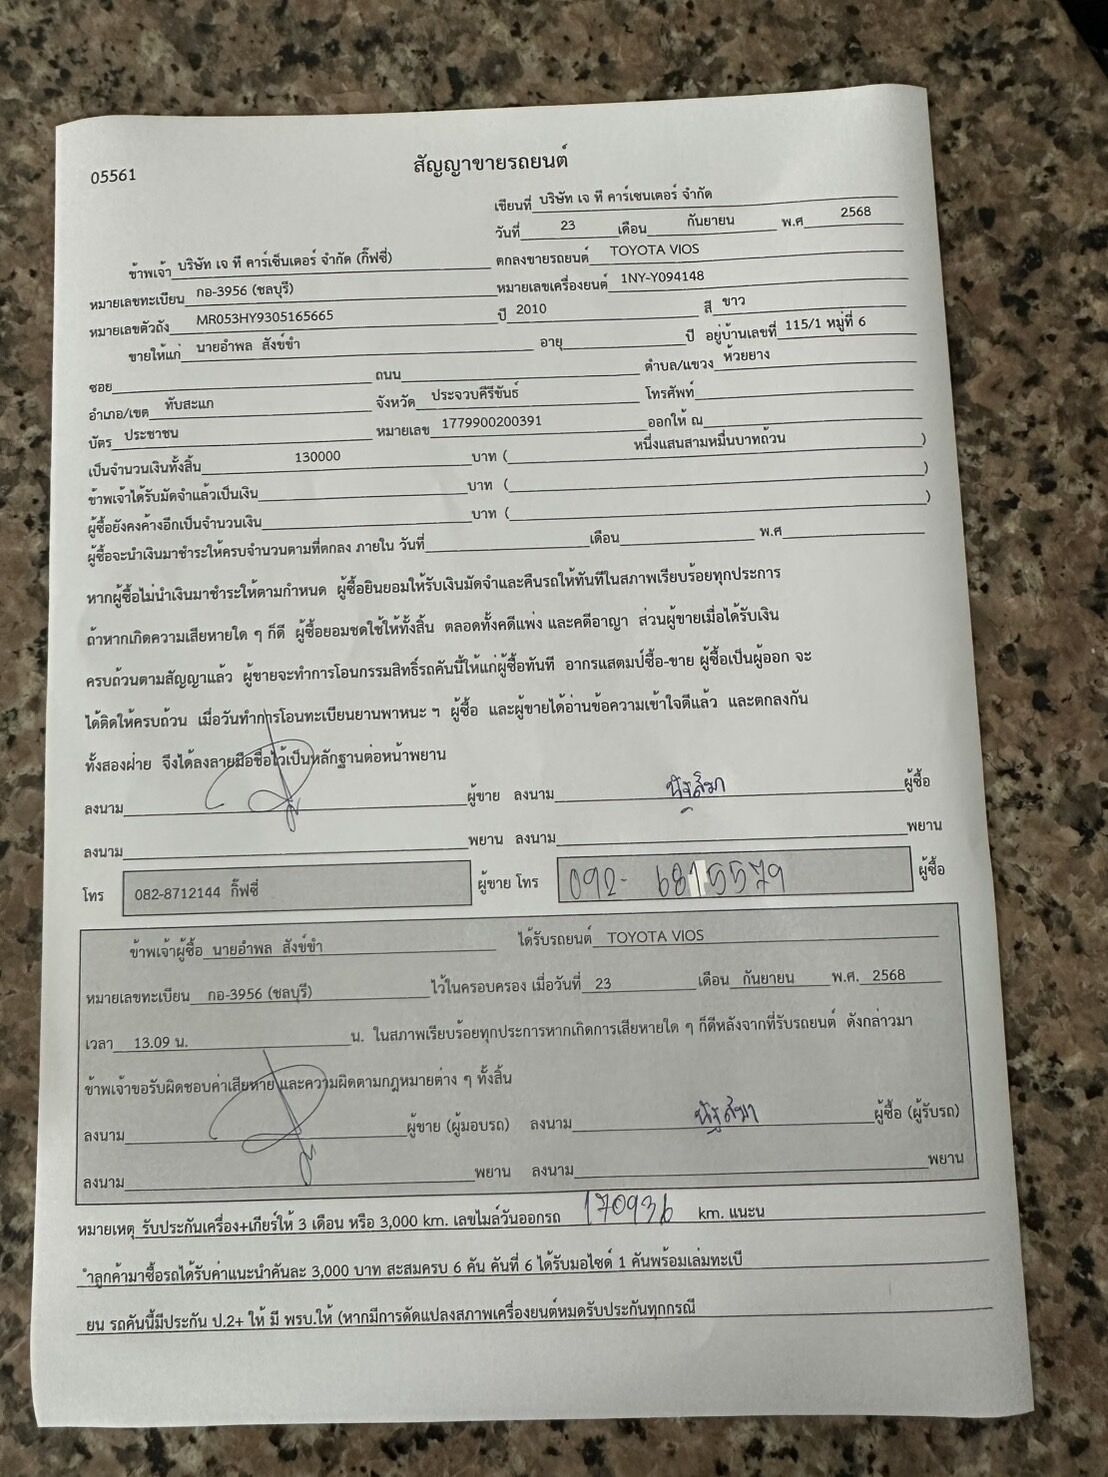 05561
สัญญาขายรถยนต์
เขียนที่ บริษัท เจ ที คาร์เซนเตอร์ จำกัด
วันที่ 23 เดือน กันยายน พ.ศ 2568
ข้าพเจ้า บริษัท เจ ที คาร์เซ็นเตอร์ จำกัด (กิ๊ฟซี่) ตกลงขายรถยนต์ TOYOTA VIOS
หมายเลขทะเบียน กอ-3956 (ชลบุรี) หมายเลขเครื่องยนต์ 1NY-Y094148
หมายเลขตัวถัง MR053HY9305165665 ปี 2010 สี ขาว
ขายให้แก่ นายอำพล สังข์ขำ อายุ ปี อยู่บ้านเลขที่ 115/1 หมู่ที่ 6
ซอย ถนน ตำบล/แขวง ห้วยยาง
อำเภอ/เขต ทับสะแก จังหวัด ประจวบคีรีขันธ์ โทรศัพท์
บัตร ประชาชน หมายเลข 1779900200391 ออกให้ ณ
เป็นจำนวนเงินทั้งสิ้น 130000 บาท ( หนึ่งแสนสามหมื่นบาทถ้วน )
ข้าพเจ้าได้รับมัดจำแล้วเป็นเงิน บาท ( )
ผู้ซื้อยังคงค้างอีกเป็นจำนวนเงิน บาท ( )
ผู้ซื้อจะนำเงินมาชำระให้ครบจำนวนตามที่ตกลง ภายใน วันที่ เดือน พ.ศ
หากผู้ซื้อไม่นำเงินมาชำระให้ตามกำหนด ผู้ซื้อยินยอมให้รับเงินมัดจำและคืนรถให้ทันทีในสภาพเรียบร้อยทุกประการ
ถ้าหากเกิดความเสียหายใด ๆ ก็ดี ผู้ซื้อยอมชดใช้ให้ทั้งสิ้น ตลอดทั้งคดีแพ่ง และคดีอาญา ส่วนผู้ขายเมื่อได้รับเงิน
ครบถ้วนตามสัญญาแล้ว ผู้ขายจะทำการโอนกรรมสิทธิ์รถคันนี้ให้แก่ผู้ซื้อทันที อากรแสตมป์ซื้อ-ขาย ผู้ซื้อเป็นผู้ออก จะ
ได้ติดให้ครบถ้วน เมื่อวันทำการโอนทะเบียนยานพาหนะ ฯ ผู้ซื้อ และผู้ขายได้อ่านข้อความเข้าใจดีแล้ว และตกลงกัน
ทั้งสองฝ่าย จึงได้ลงลายมือชื่อไว้เป็นหลักฐานต่อหน้าพยาน
ลงนาม ผู้ขาย ลงนาม ผู้ซื้อ
ลงนาม พยาน ลงนาม พยาน
โทร 082-8712144 กิ๊ฟซี่ ผู้ขาย โทร 092-6815579 ผู้ซื้อ
ข้าพเจ้าผู้ซื้อ นายอำพล สังข์ขำ ได้รับรถยนต์ TOYOTA VIOS
หมายเลขทะเบียน กอ-3956 (ชลบุรี) ไว้ในครอบครอง เมื่อวันที่ 23 เดือน กันยายน พ.ศ. 2568
เวลา 13.09 น. น. ในสภาพเรียบร้อยทุกประการหากเกิดการเสียหายใด ๆ ก็ดีหลังจากที่รับรถยนต์ ดังกล่าวมา
ข้าพเจ้าขอรับผิดชอบค่าเสียหาย และความผิดตามกฎหมายต่าง ๆ ทั้งสิ้น
ลงนาม ผู้ขาย (ผู้มอบรถ) ลงนาม ผู้ซื้อ (ผู้รับรถ)
ลงนาม พยาน ลงนาม พยาน
หมายเหตุ รับประกันเครื่อง+เกียร์ให้ 3 เดือน หรือ 3,000 km. เลขไมล์วันออกรถ 170936 km. แนะน
ำลูกค้ามาซื้อรถได้รับค่าแนะนำคันละ 3,000 บาท สะสมครบ 6 คัน คันที่ 6 ได้รับมอไซด์ 1 คันพร้อมเล่มทะเบี
ยน รถคันนี้มีประกัน ป.2+ ให้ มี พรบ.ให้ (หากมีการดัดแปลงสภาพเครื่องยนต์หมดรับประกันทุกกรณี